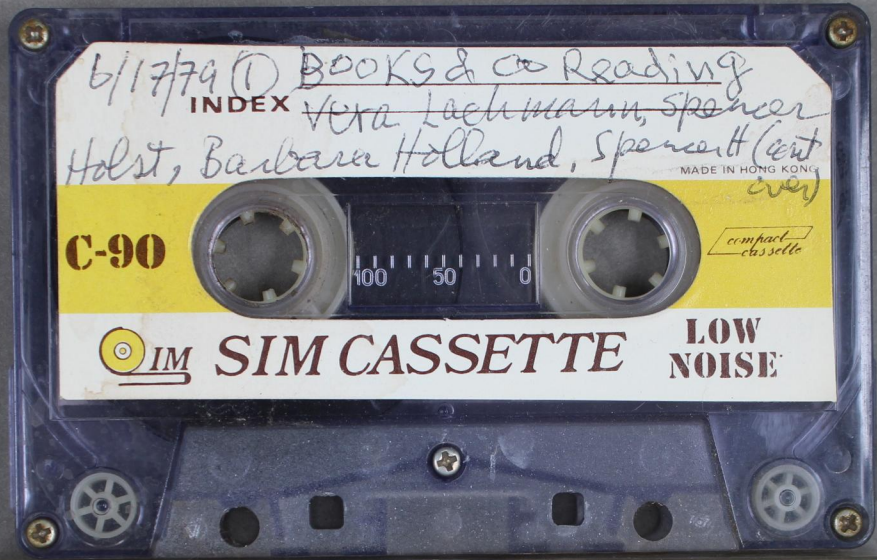 6/17/79 ① Books & Co Reading
INDEX Vera Lachmann, Spencer
Holst, Barbara Holland, Spencer H (cont
MADE IN HONG KONG
over)
C-90
100 50 0
compact
cassette
SIM SIM CASSETTE
LOW
NOISE